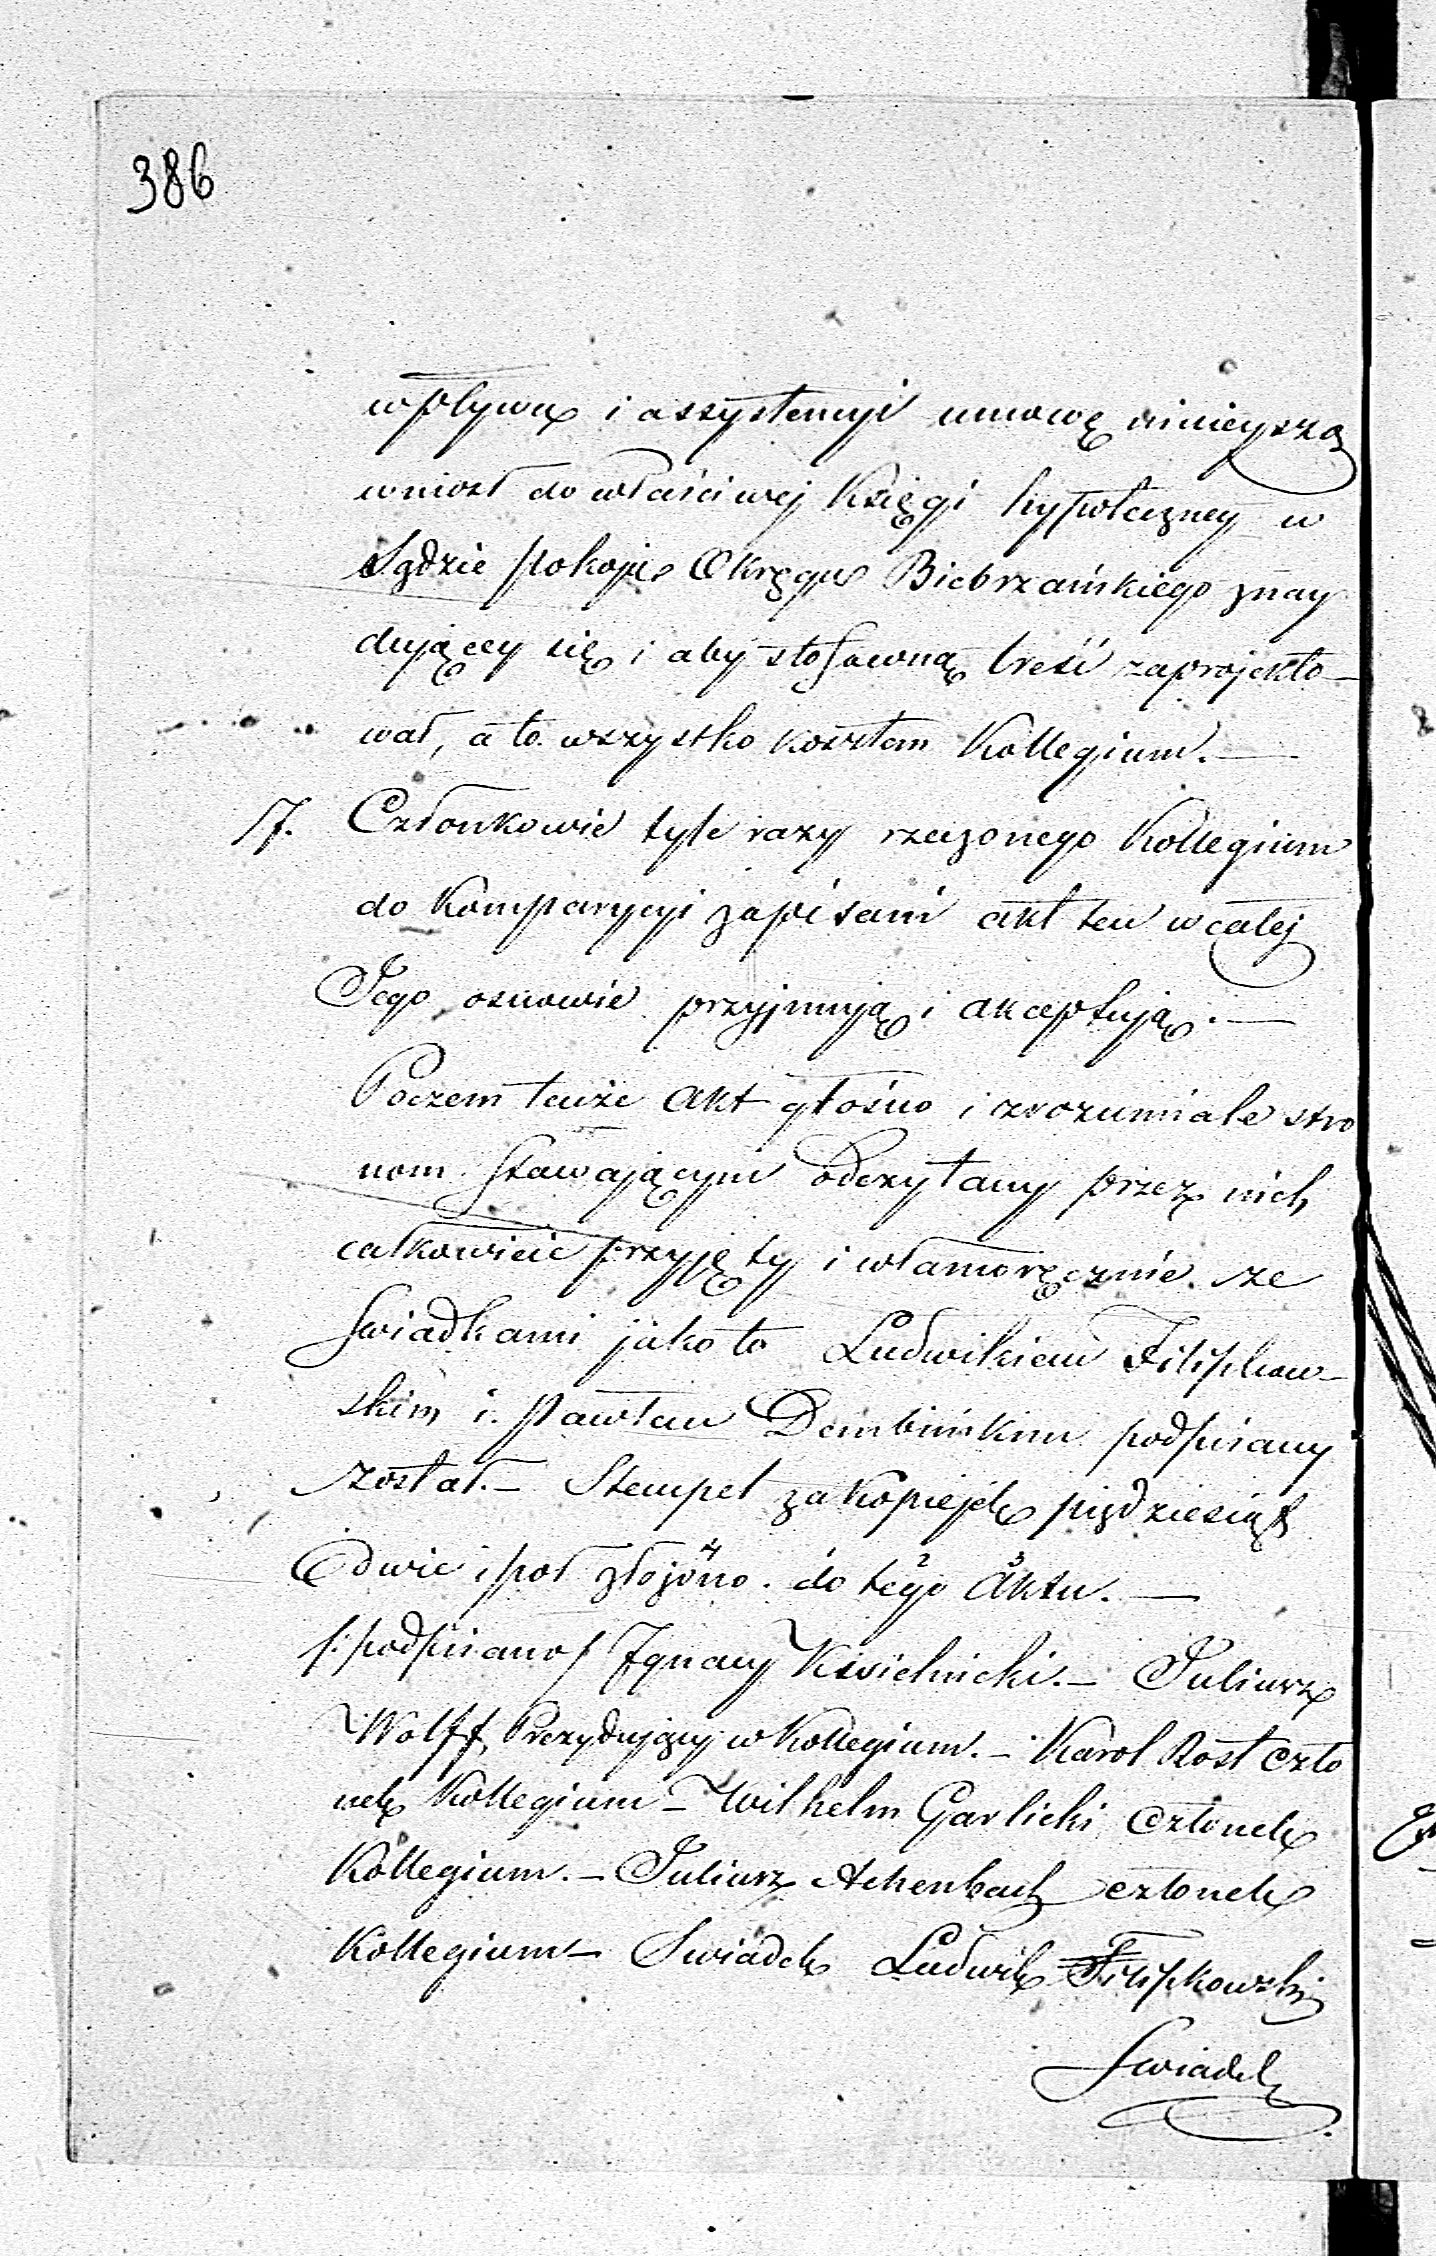 386
wpływu i assystencyi umowę ninieyszą
wniosł do właściwej Księgi hypoteczney w
Sądzie pokoju Okręgu Biebrzańskiego znay
dującey się i aby stosowną treść zaprojekto-
wał, a to wszystko kosztem Kollegium. —
7. Członkowie tyle razy rzeczonego Kollegium
do Komparycyi zapisani akt ten w całej
Jego osnowie przyjmują i akceptują. —
Poczem tenże Akt głośno i zrozumiale stro
nom stawającym odczytany przez nich
całkowicie przyjęty i własnoręcznie ze
Swiadkami jako to Ludwikiem Filipkow-
skim i Pawłem Dembińskim podpisany
został. – Stempel za Kopiejek pięćdziesiąt
dwie i poł złożono do tego Aktu. —
/:podpisano/ Ignacy Kisielnicki. – Juliusz
Wolff, Prezydujący w Kollegium. – Karol Rost Czło
nek Kollegium – Wilhelm Garlicki Członek
Kollegium. – Juliusz Achenbach członek
Kollegium – Swiadek Ludwik Filipkowski
Swiadek